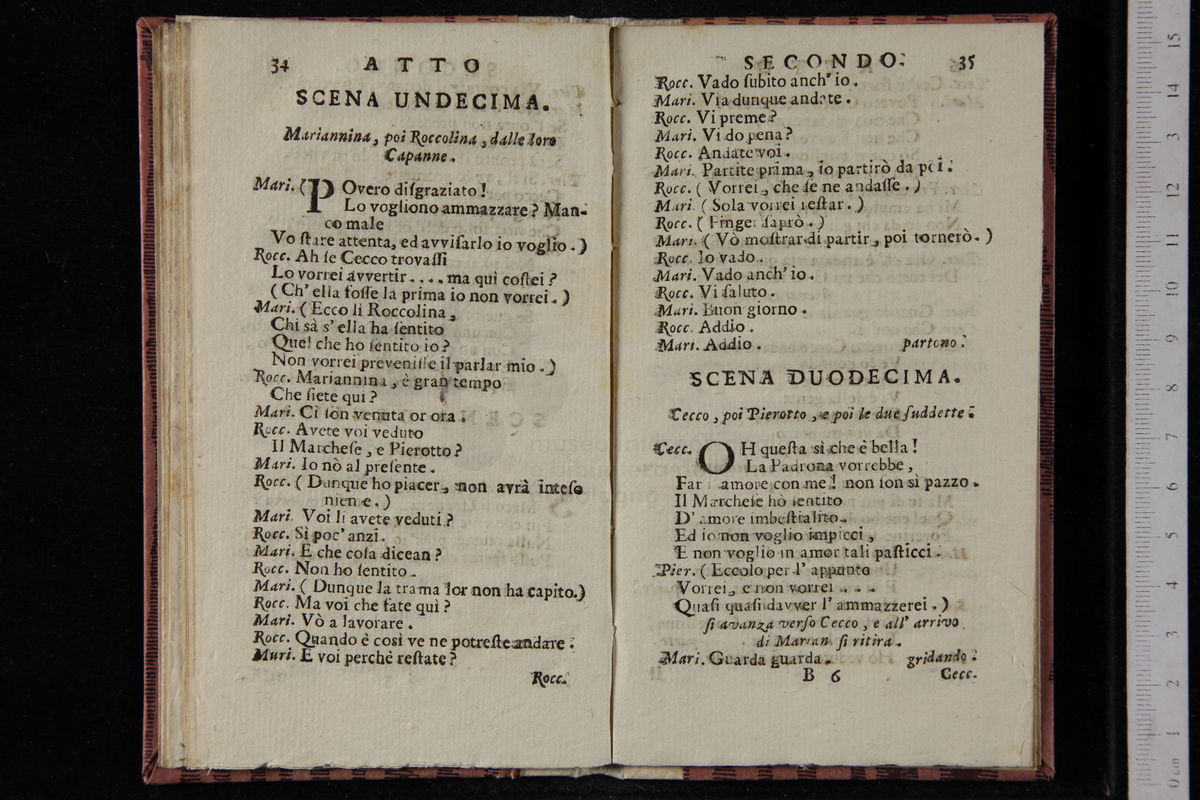 34 ATTO
SCENA UNDECIMA.
Mariannina, poi Roccolina, dalle loro
Capanne.
Mari. (POvero diſgraziato!
Lo vogliono ammazzare? Man-
co male
Vo ſtare attenta, ed avviſarlo io voglio.)
Rocc. Ah ſe Cecco trovaſſi
Lo vorrei avvertir.... ma quì coſtei?
(Ch' ella foſſe la prima io non vorrei.)
Mari. (Ecco lì Roccolina,
Chi sà s' ella ha ſentito
Quel che ho ſentito io?
Non vorrei preveniſſe il parlar mio.)
Rocc. Mariannina, è gran tempo
Che ſiete quì?
Mari. Ci ſon venuta or ora.
Rocc. Avete voi veduto
Il Marcheſe, e Pierotto?
Mari. Io nò al preſente.
Rocc. (Dunque ho piacer, non avrà inteſo
niente.)
Mari. Voi li avete veduti?
Rocc. Sì poc' anzi.
Mari. E che coſa dicean?
Rocc. Non ho ſentito.
Mari. (Dunque la trama lor non ha capito.)
Rocc. Ma voi che fate quì?
Mari. Vò a lavorare.
Rocc. Quando è così ve ne potreſte andare.
Muri. E voi perchè reſtate?
Rocc.
SECONDO. 35
Rocc. Vado ſubito anch' io.
Mari. Via dunque andate.
Rocc. Vi preme?
Mari. Vi do pena?
Rocc. Andate voi.
Mari. Partite prima, io partirò da poi.
Rocc. (Vorrei, che ſe ne andaſſe.)
Mari. (Sola vorrei reſtar.)
Rocc. (Finger ſaprò.)
Mari. (Vò moſtrar di partir, poi tornerò.)
Rocc. Io vado.
Mari. Vado anch' io.
Rocc. Vi ſaluto.
Mari. Buon giorno.
Rocc. Addio.
Mari. Addio. partono.
SCENA DUODECIMA.
Cecco, poi Pierotto, e poi le due ſuddette.
Cecc. OH queſta sì che è bella!
La Padrona vorrebbe,
Far amore con me! non ſon sì pazzo.
Il Marcheſe hò ſentito
D' amore imbeſtialito.
Ed io non voglio impicci,
E non voglio in amor tali paſticci.
Pier. (Eccolo per l' appunto
Vorrei, e non vorrei ....
Quaſi quaſi davver l' ammazzerei.)
ſi avanza verſo Cecco, e all' arrivo
di Marian. ſi ritira.
Mari. Guarda guarda. gridando.
B 6 Cecc.